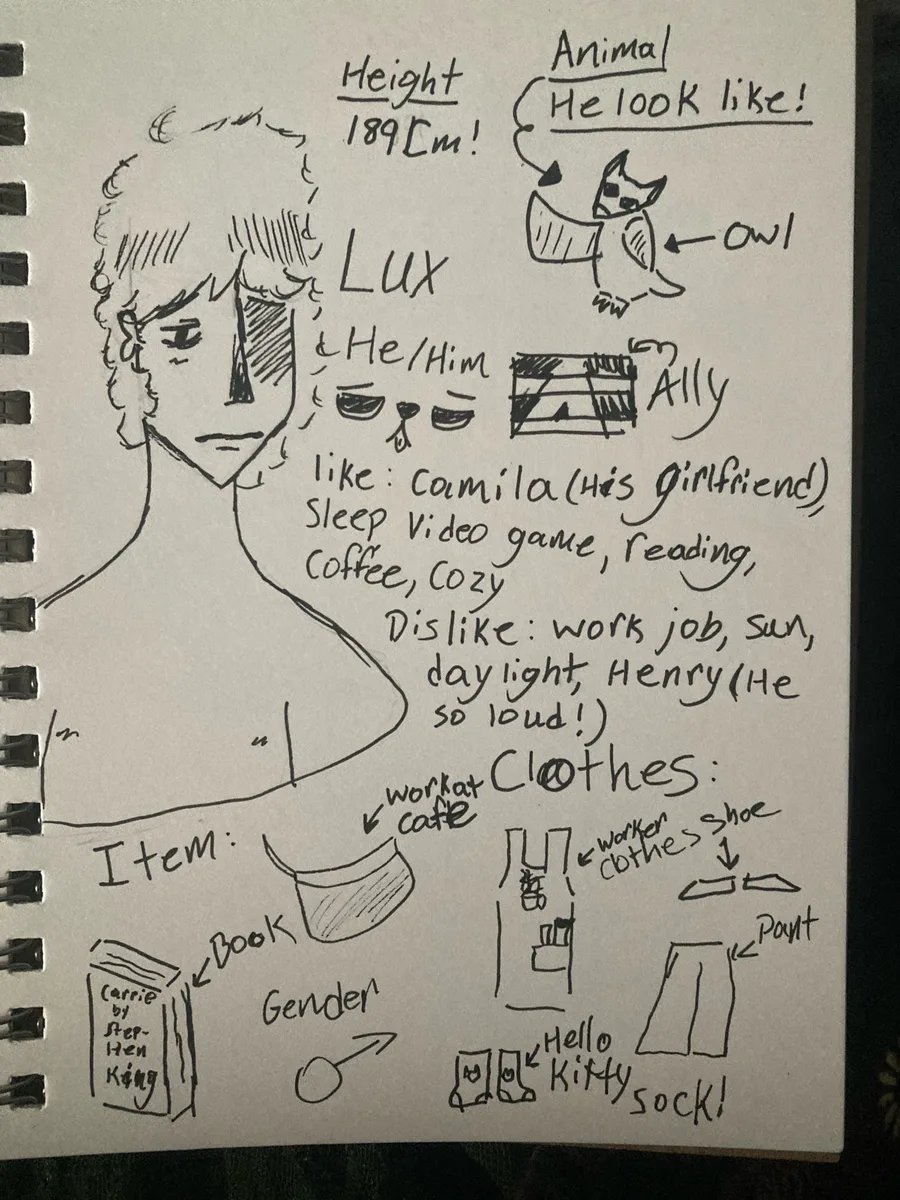 Height
189 Cm!
Animal
He look like!
owl
Lux
He/Him
Ally
like: Camila (His girlfriend),
Sleep Video game, reading,
Coffee, Cozy
Dislike: work job, sun,
day light, Henry (He
so loud!)
Clothes:
Item:
work at
cafe
worker
clothes
shoe
Book
Pant
Carrie
by
Step-
Hen
King
Gender
Hello
Kitty
sock!